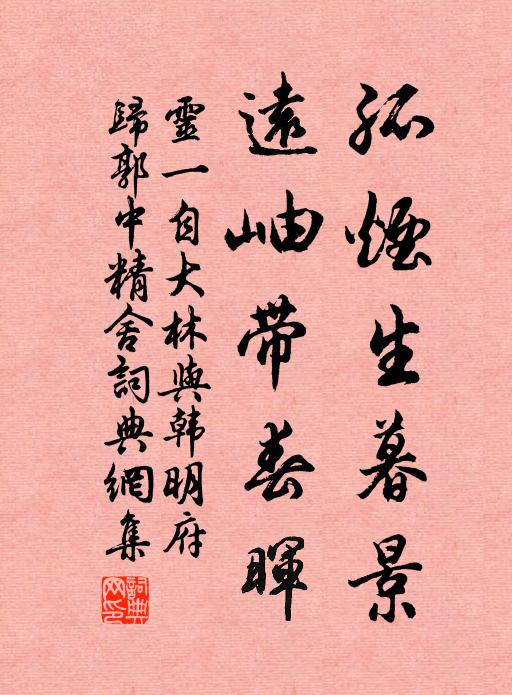 孤煙生暮景
遠岫帶春暉
靈一自大林與韩明府
歸郭中精舍詞典網集
詞典网印